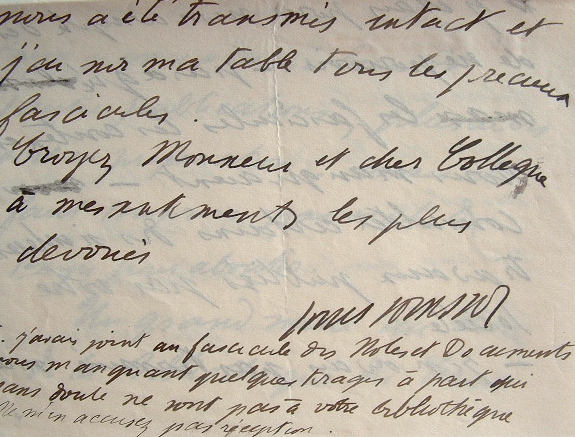 nous a été transmis intact et
j'ai sur ma table tous les précieux
fascicules.
Croyez Monsieur et cher Collègue
à mes sentiments les plus
dévoués
Louis
. j'avais joint au fascicule des Notes et Documents
vous manquant quelques tirages à part qui
sans doute ne sont pas à votre bibliothèque
Ne m'en accusez pas réception.